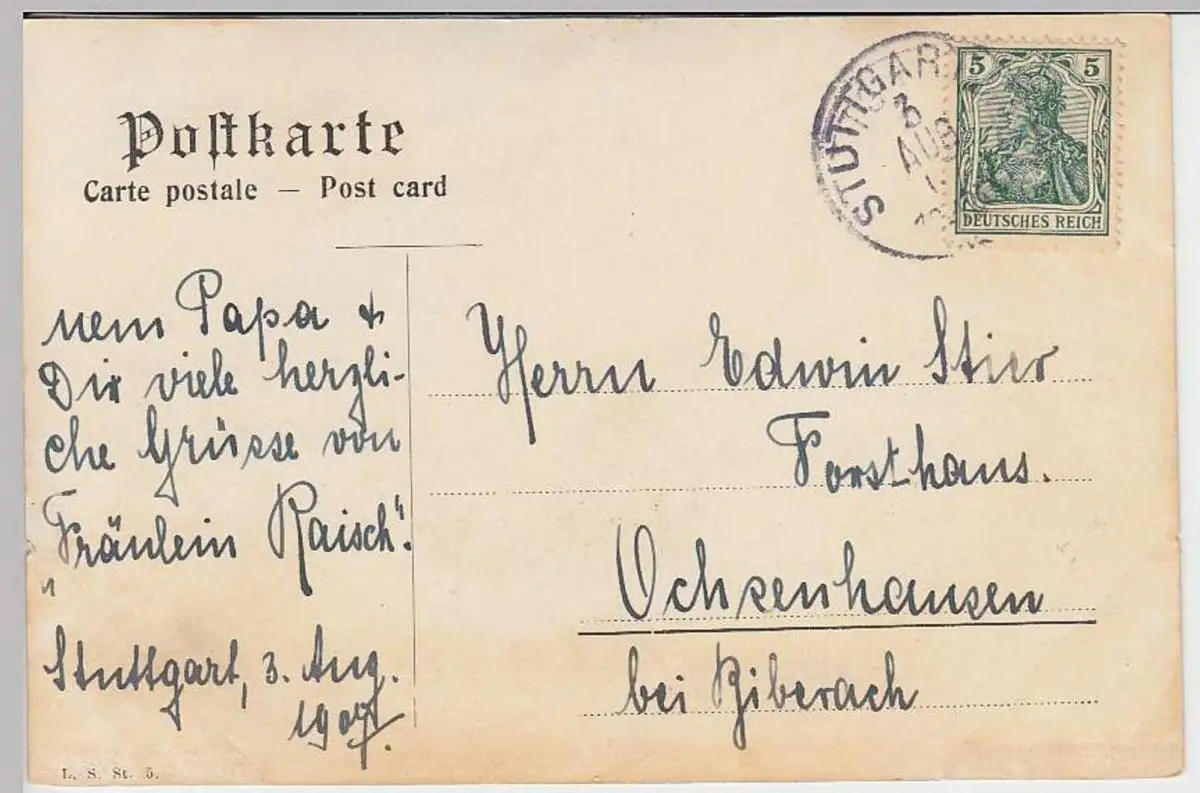 Postkarte
Carte postale — Post card
STUTTGAR
3
AUG
5 5
DEUTSCHES REICH
nem Papa &
Dir viele herzli-
che Grüsse von
"Fräulein Raisch".
Stuttgart, 3. Aug.
1907.
Herrn Edwin Stier
Forsthaus.
Ochsenhausen
bei Biberach
L. S. St. 5.